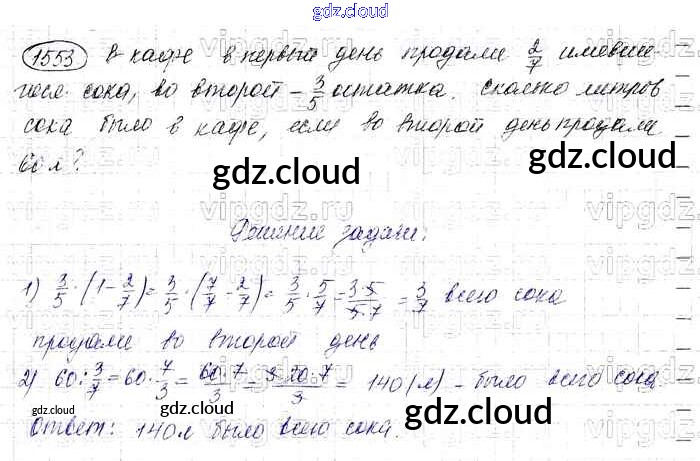 gdz.cloud
1553 В кафе в первый день продали 2/7 имевше-
гося сока, во второй – 3/5 остатка. Сколько литров
сока было в кафе, если во второй день продали
60 л?
gdz.cloud gdz.cloud
Решение задачи:
1) 3/5 · (1 - 2/7) = 3/5 · (7/7 - 2/7) = 3/5 · 5/7 = 3·5/5·7 = 3/7 всего сока
продали во второй день
2) 60 : 3/7 = 60 · 7/3 = 60·7/3 = 3·20·7/3 = 140 (л) - было всего сока
gdz.cloud gdz.cloud gdz.cloud
Ответ: 140 л было всего сока.